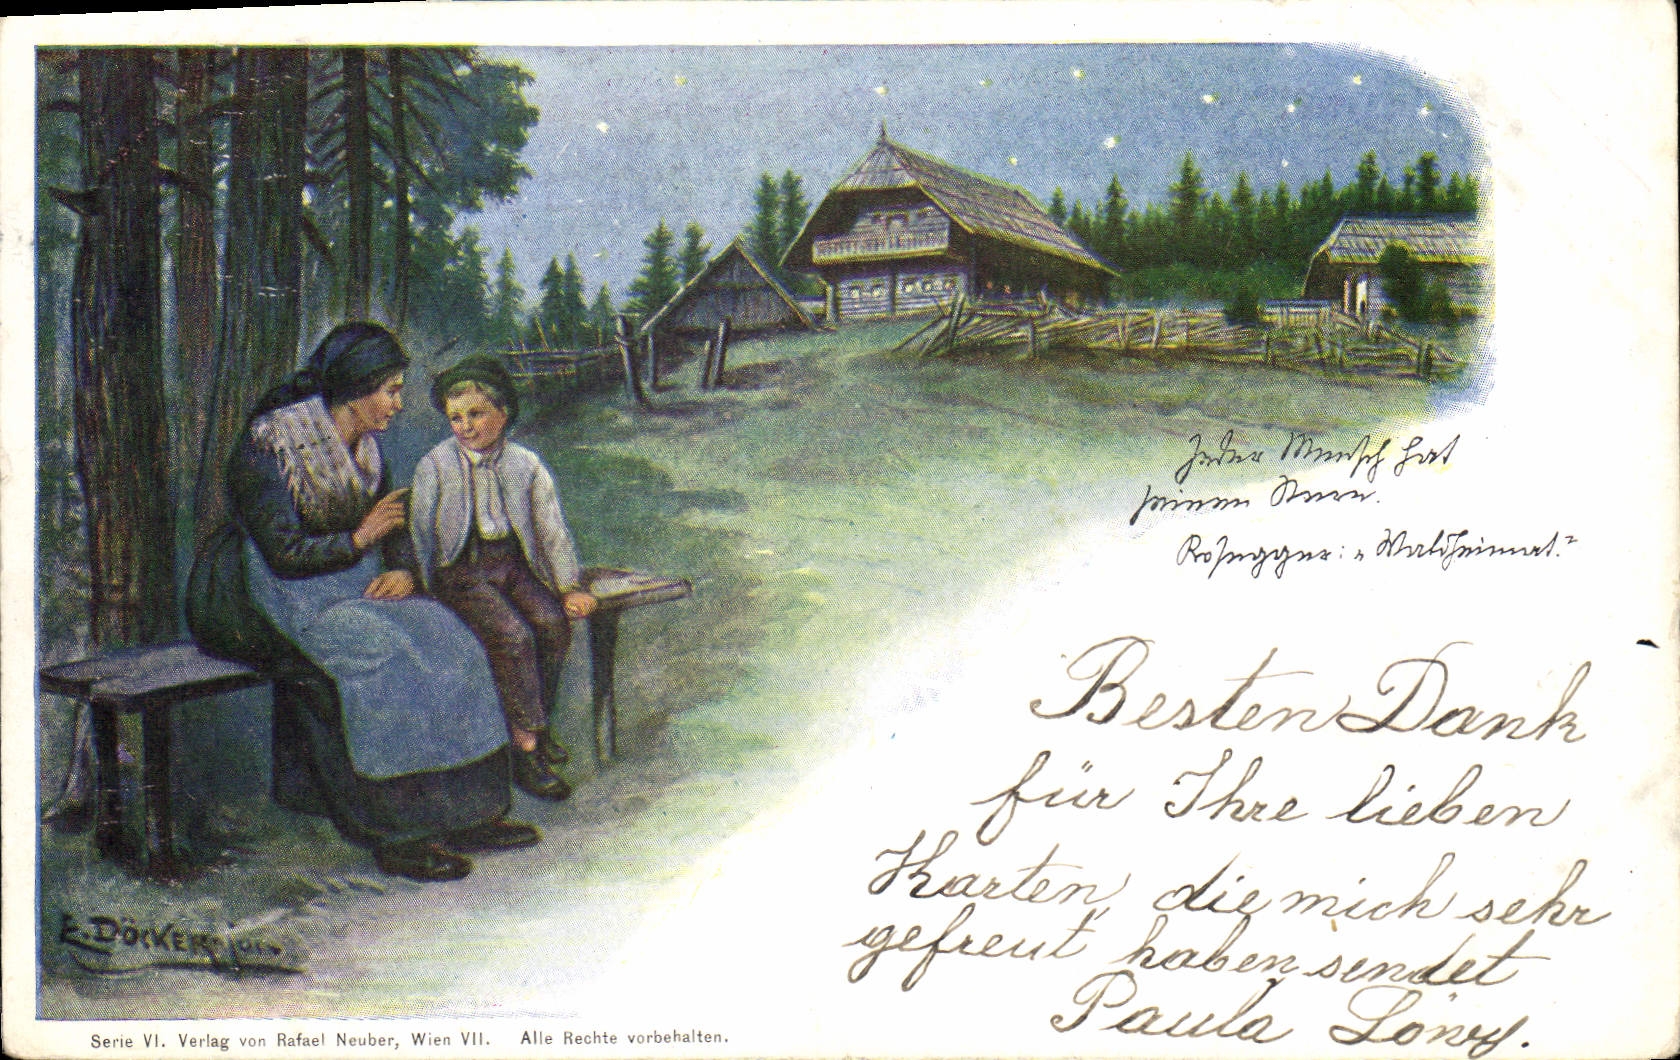 Jeder Mensch hat
seinen Stern.
Rosegger: „Waldheimat."
Besten Dank
für Ihre lieben
Karten, die mich sehr
gefreut haben sendet
Paula Löwy.
E. DÖCKER jun.
Serie VI. Verlag von Rafael Neuber, Wien VII. Alle Rechte vorbehalten.